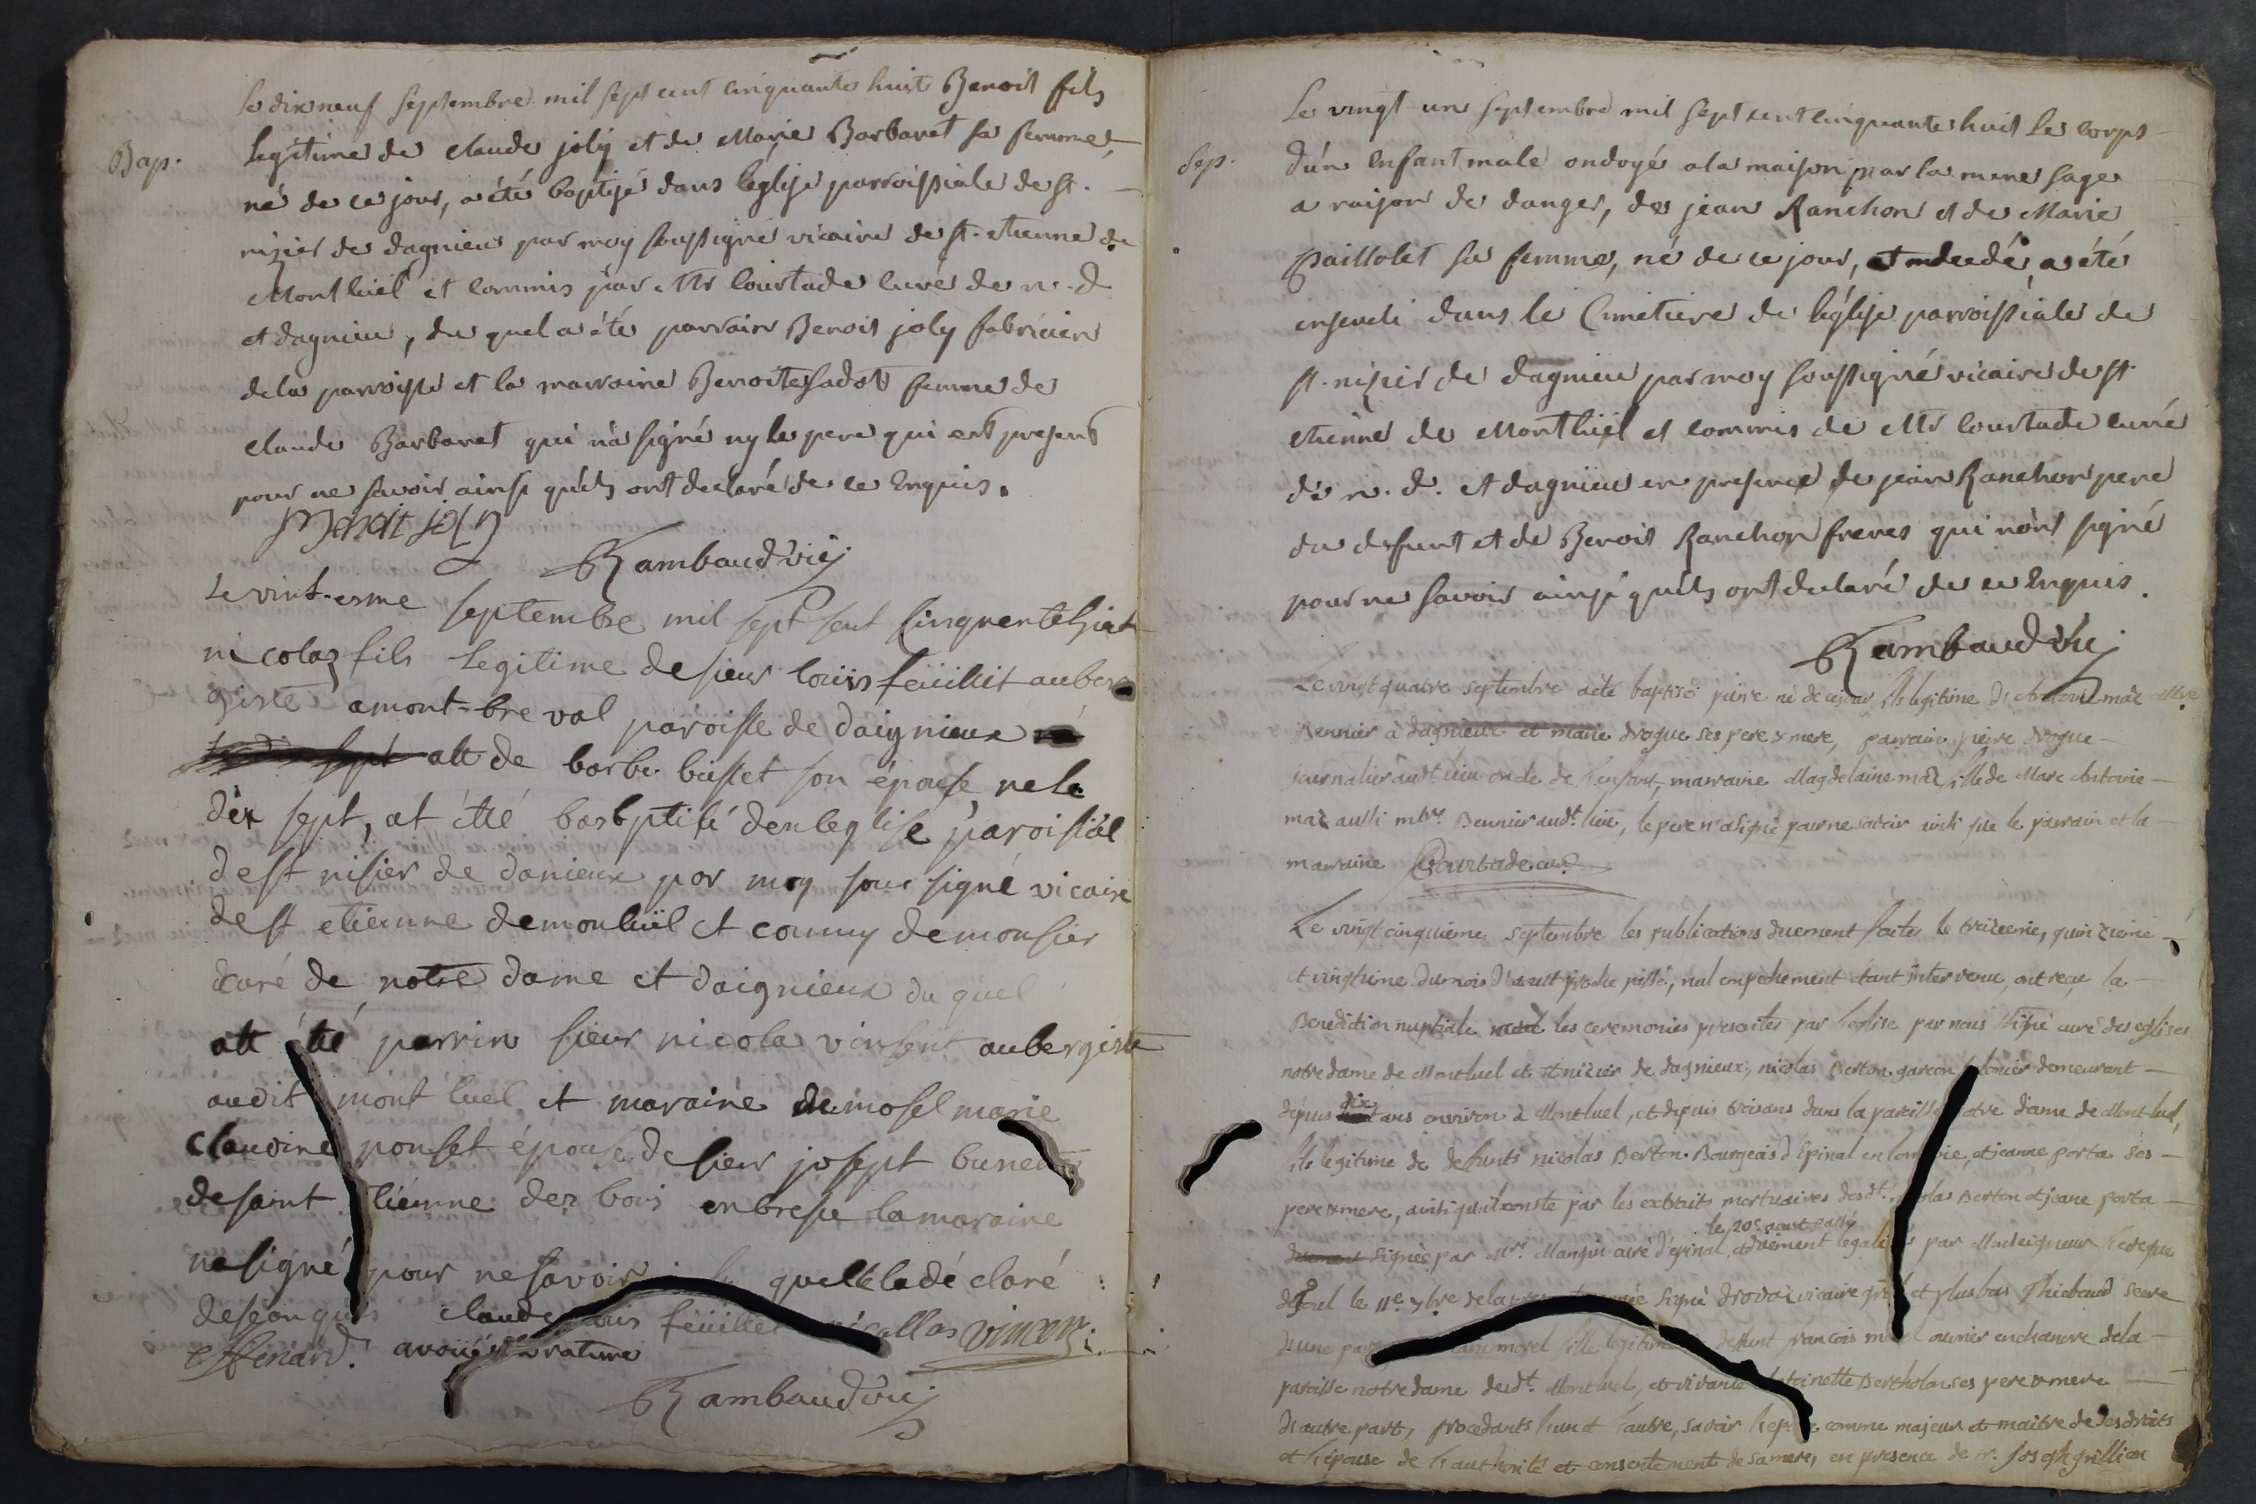 le dixneuf septembre mil sept cent cinquante huit Benoit fils
Bap.
legitime de claude joly et de Marie Barbaret sa femme,
né de ce jour, a été baptisé dans leglise parroissiale de st.
nizier de dagnieu par moy soussigné vicaire de st. etienne de
Montluel et commis par Mr courtade curé de n. d
et dagnieu, du quel a été parrain Benoit joly fabricien
de la parroisse et la marraine Benoite sadot femme de
claude Barbaret qui n'a signé ny le pere qui est present
pour ne savoir ainsi qu'ils ont declaré de ce Enquis.
Benoit joly
Rambaud vic
Le vint-esme septembre mil sept sent sinquente huit
nicolas fils legitime de sieur louis feüillet auber
giste a mont-breval paroisse de daignieux
att de barbe busset son épouse ne le
dix sept, at étté basbptisé den leglise paroisial
de st nisier de danieux par moy sous signé vicaire
de st etienne de monluüil et commy de monsier
curé de notre dame et daignieux du quel
att été parrin sieur nicola vinsent aubergiste
audit mont luel et maraine demosel marie
claudine ponset épouse de sieur josept
de saint tiénne des bois en bresse la maraine
na signé pour ne savoir quelle la dé claré
claude feüillet nicollas vincent
avoüé rature
Rambaud vic
Le vingt un septembre mil sept cent cinquante huit le corps
Sep.
d'un Enfant mâle ondoyé a la maison par la mere sage
a raison de danger, de jean Ranchon et de Marie
Paillolet sa femme, né de ce jour, et decedé a été
enseveli dans le Cimetiere de l'église parroissiale de
st. nizier de dagnieu par moy soussigné vicaire de st.
etienne de Montluel et commis de Mr courtade curé
de n. d. et dagnieu en presence de jean Ranchon pere
du defunt et de Benoit Ranchon freres qui n'ont signé
pour ne savoir ainsi qu'ils ont declaré de ce Enquis.
Rambaud vic
Le vingt quatre septembre a été baptisé pierre né de ce jour fils legitime d'Antoine maz
à dagnieux et marie drogue ses pere & mere, parrain pierre drogue
journalier audt lieu oncle de l'enfant, marraine Magdelaine maz fille de Marc Antoine
maz aussi audt. lieu, le pere n'a signé pour ne savoir ainsi que le parrain et la
marraine Courtade curé
Le vingt cinquieme septembre les publications duement faites le treizieme, quinzieme
et vingtieme du mois d'aoust proche passé, nul empechement étant intervenu ont reçu la
Benediction nuptiale les ceremonies prescrites par l'eglise par nous signé curé des eglises
notre dame de Montluel et st nizier de dagnieux, nicolas Berton garcon demeurant
depuis dix ans environ à Montluel, et depuis trois ans dans la paroisse notre dame de Montluel,
fils legitime de defunts nicolas Berton Bourgeois d'Epinal en, et jeanne porta ses
pere & mere, ainsi qu'il conste par les extraits mortuaires desdt. nicolas Berton et jeane porta
le 20e aout passé
signés par Mr. Mangin curé d'epinal, et duëment legalisés par Monseigneur l'eveque
de Toul le 11e 7bre de la signé vicaire et plus bas Thiebaud secre
d'une part morel fille legitime deffunt francois morel ouvrier en chanvre de la
paroisse notre dame dudt. Montluel, et vivante antoinette Bertholon ses pere & mere
d'autre part, procedants l'un et l'autre, savoir l'epoux comme majeur et maitre de ses droits
et l'épouse de l'authorité et consentement de sa mere, en presence de sr. Joseph grillion